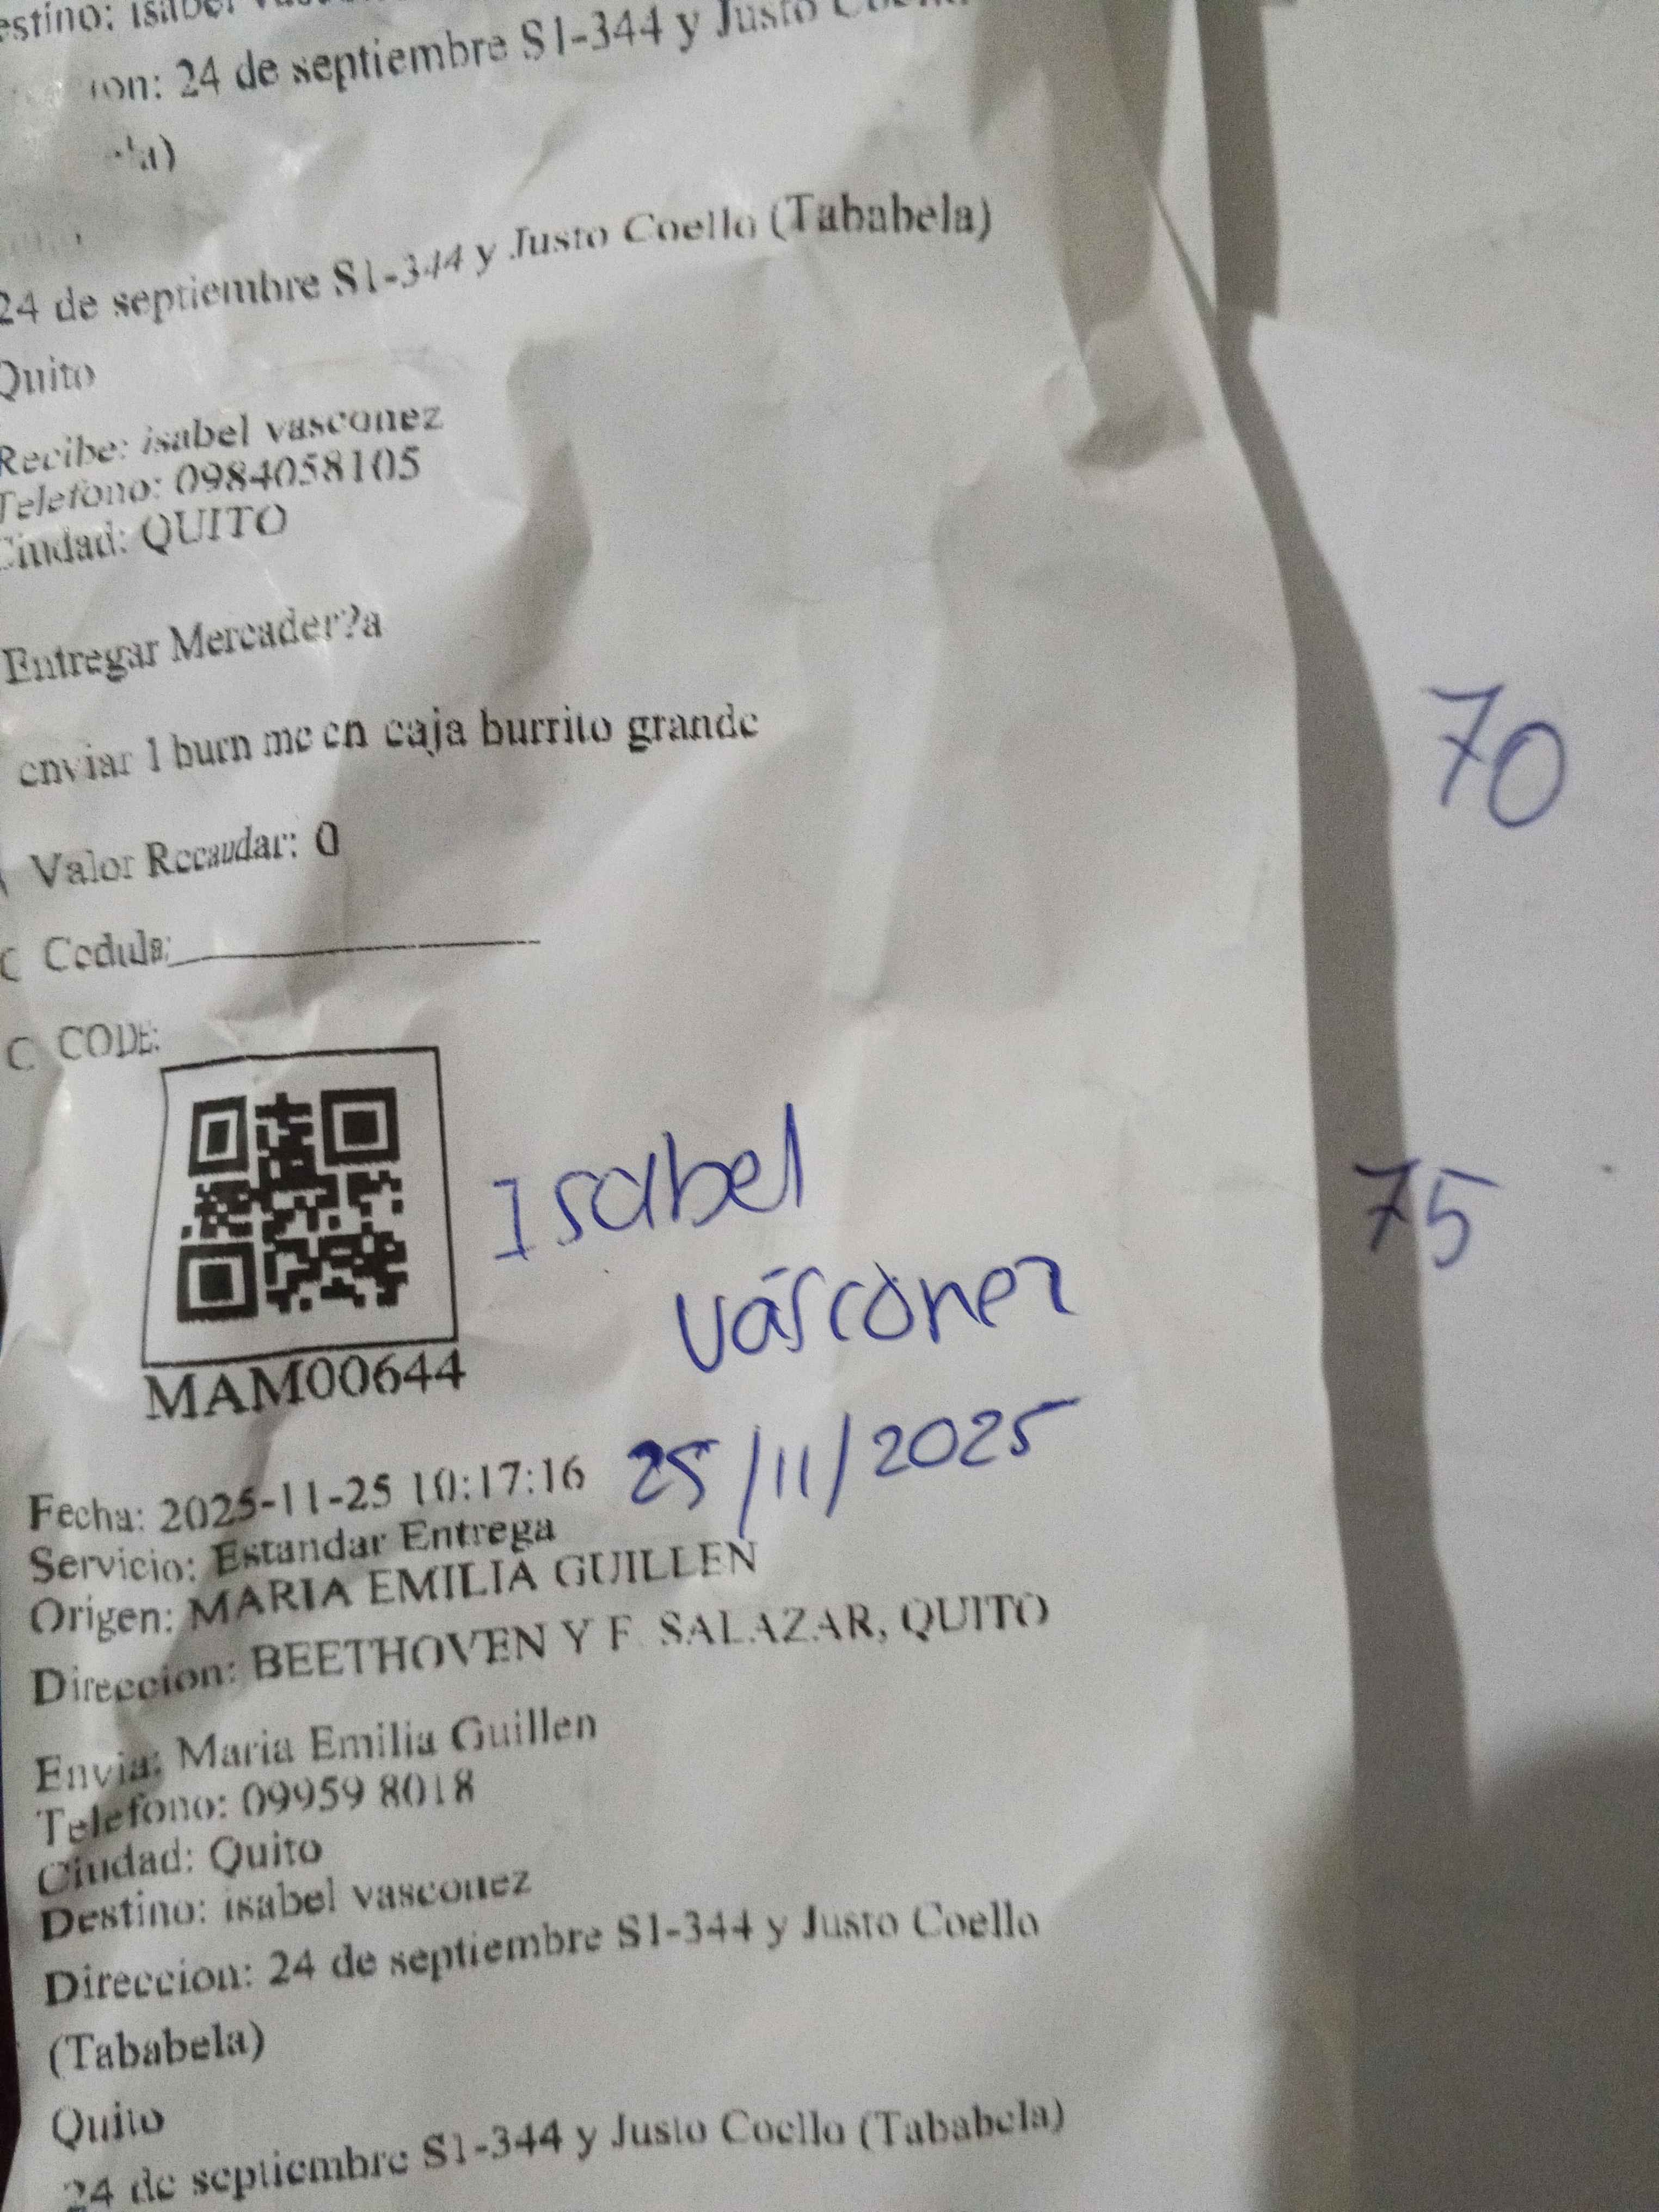 estino: isabel
ion: 24 de septiembre S1-344 y Justo
la)
24 de septiembre S1-344 y Justo Coello (Tababela)
Quito
Recibe: isabel vasconez
Telefono: 0984058105
Ciudad: QUITO
Entregar Mercader?a
enviar 1 burn me en caja burrito grande
70
Valor Recaudar: 0
C Cedula:
C CODE:
Isabel
75
vásconez
MAM00644
Fecha: 2025-11-25 10:17:16
25/11/2025
Servicio: Estandar Entrega
Origen: MARIA EMILIA GUILLEN
Direccion: BEETHOVEN Y F. SALAZAR, QUITO
Envia: Maria Emilia Guillen
Telefono: 09959 8018
Ciudad: Quito
Destino: isabel vasconez
Direccion: 24 de septiembre S1-344 y Justo Coello
(Tababela)
Quito
24 de septiembre S1-344 y Justo Coello (Tababela)